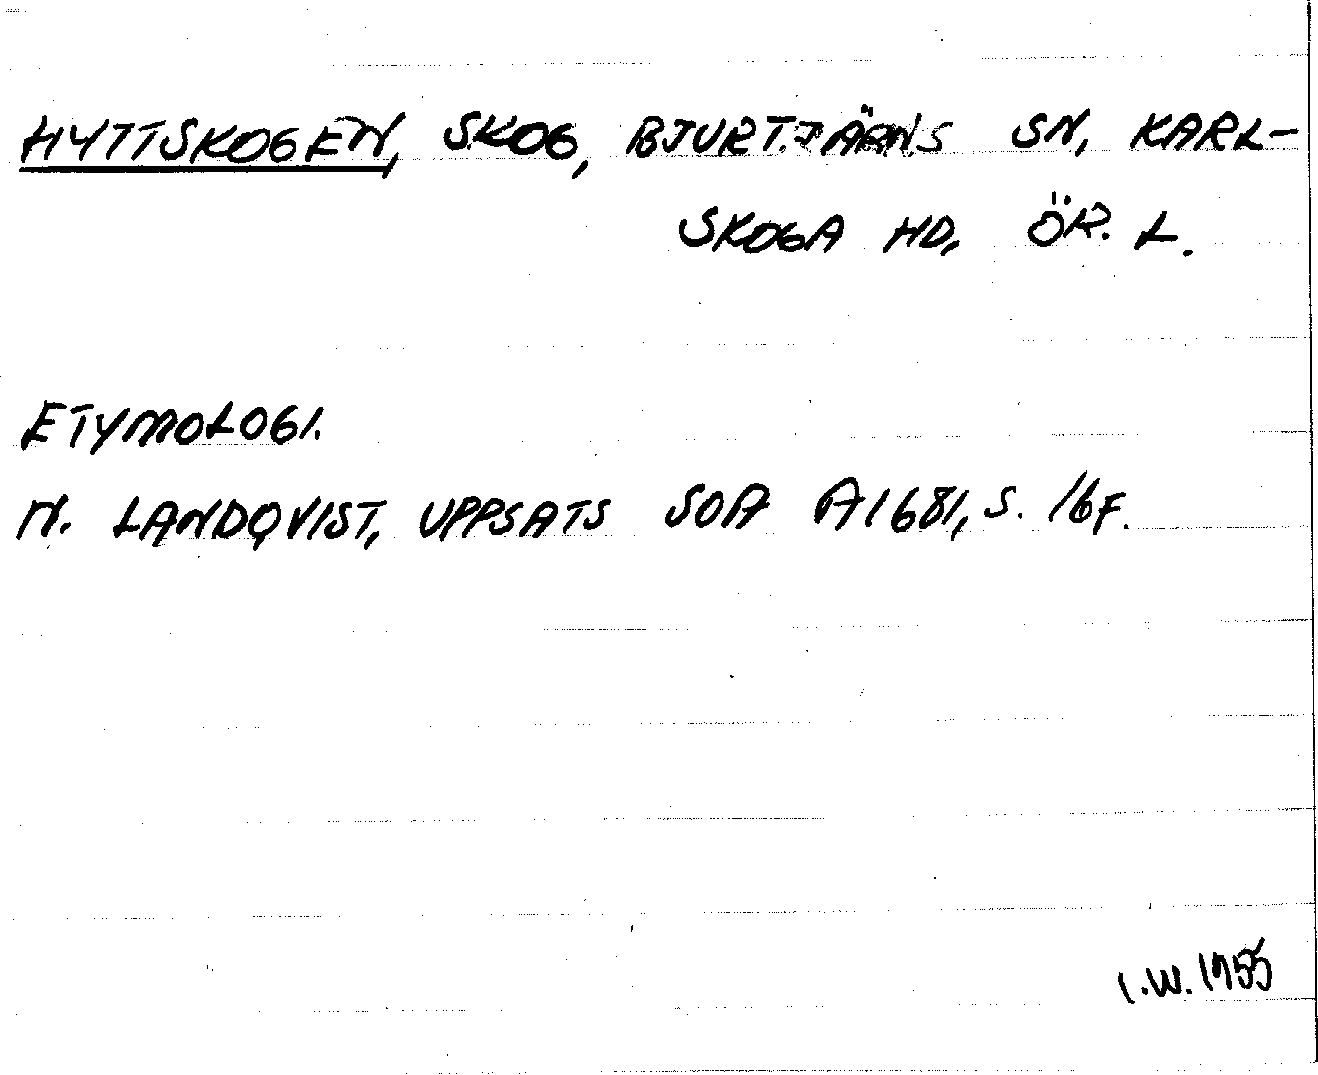 HYTTSKOGEN, SKOG, BJURTJÄRNS SN, KARL-
SKOGA HD, ÖR. L.
ETYMOLOGI.
N. LANDQVIST, UPPSATS SOA A1681, S. 16F.
I.W. 1955